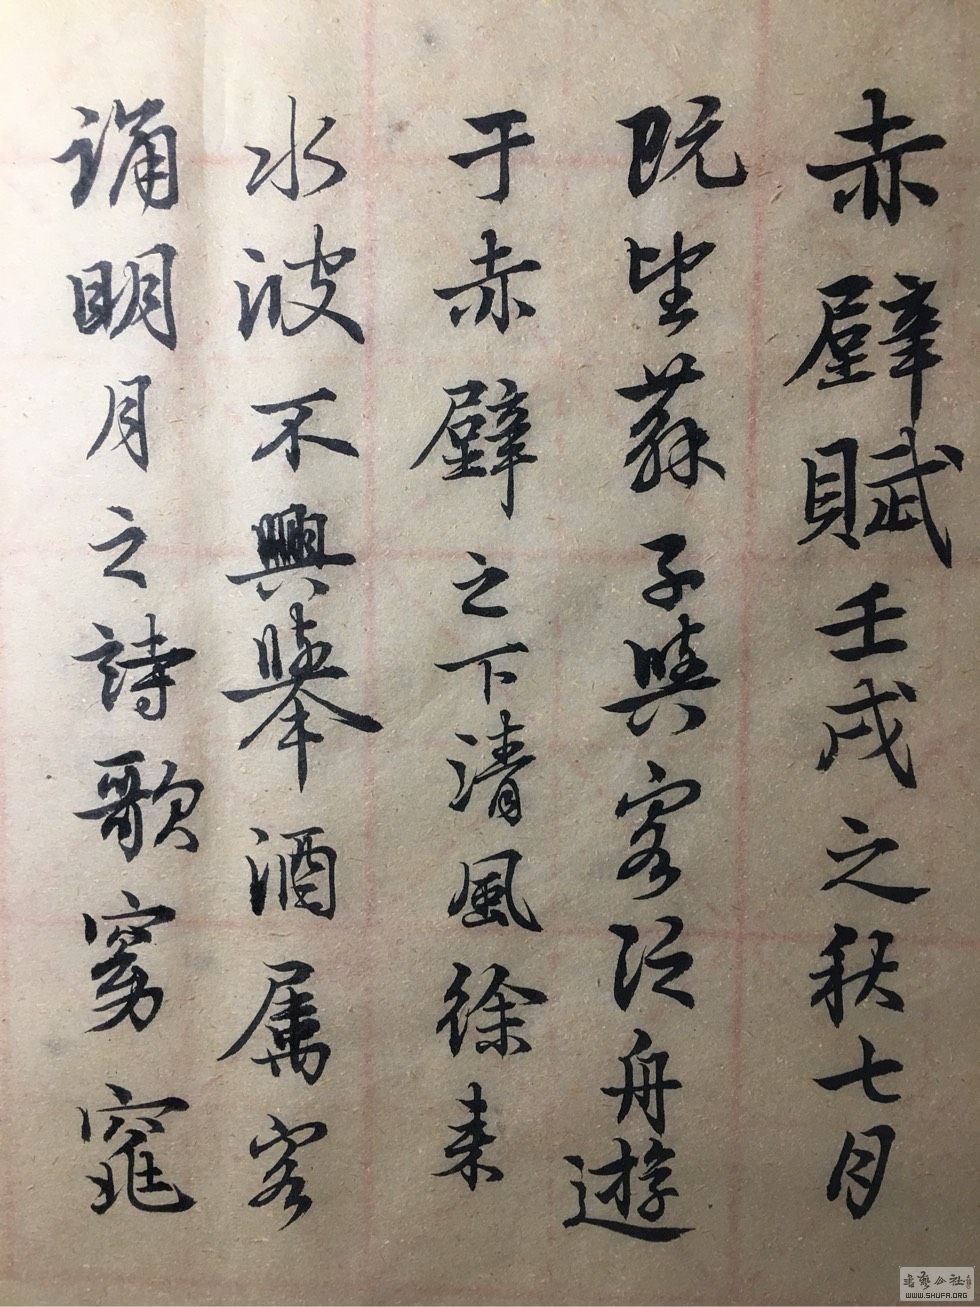 赤壁賦壬戌之秋七月
既望蘇子與客泛舟遊
于赤壁之下清風徐来
水波不興舉酒属客
誦明月之詩歌窈窕
WWW.SHUFA.ORG